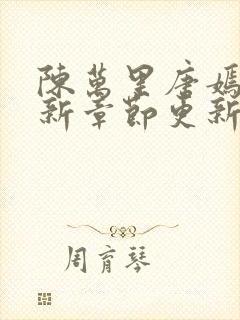 陳萬里唐嫣
新章節更新
周育琴